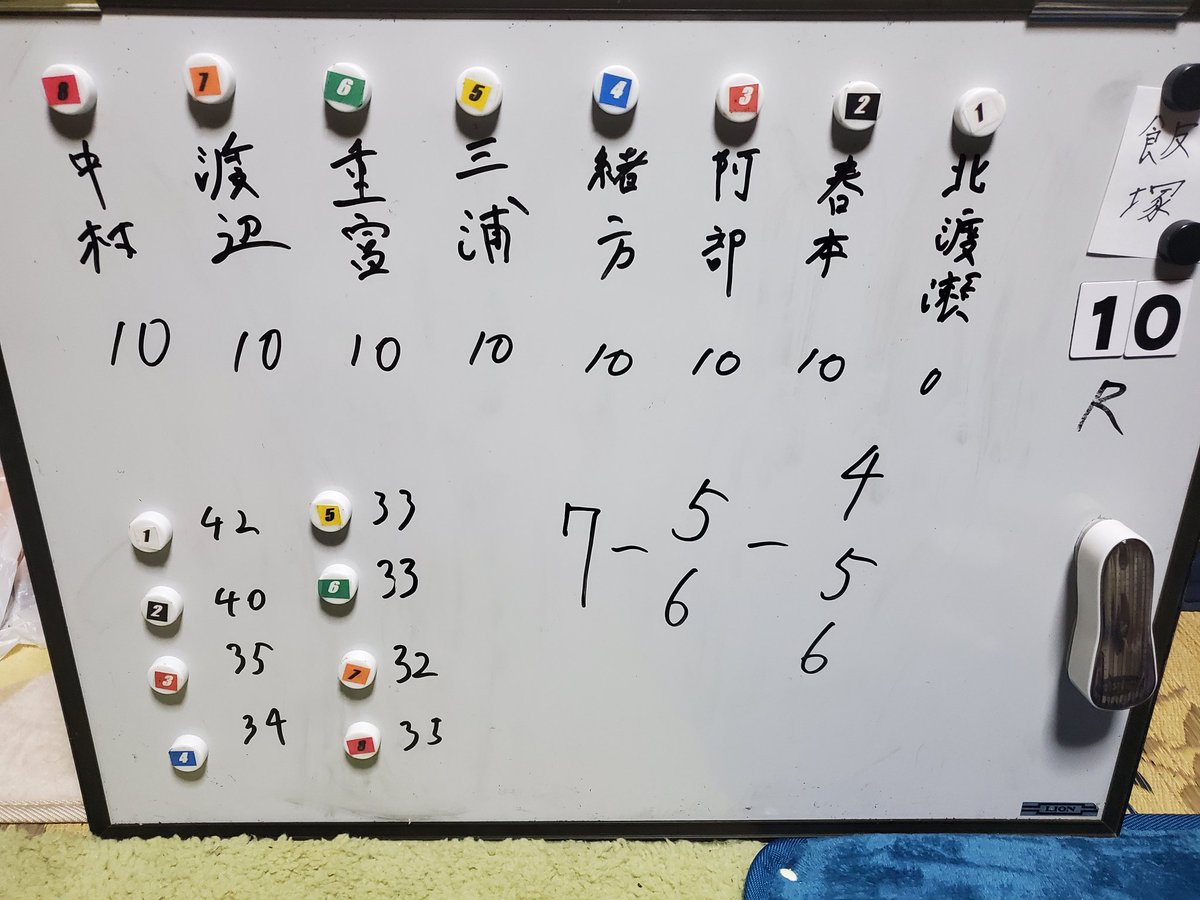 8 7 6 5 4 3 2 1
中村 渡辺 重富 三浦 緒方 阿部 春本 北渡瀬
10 10 10 10 10 10 10 0
飯塚
10
R
1 42
2 40
3 35
4 34
5 33
6 33
7 32
8 35
7 - 5 6 - 4 5 6
LION